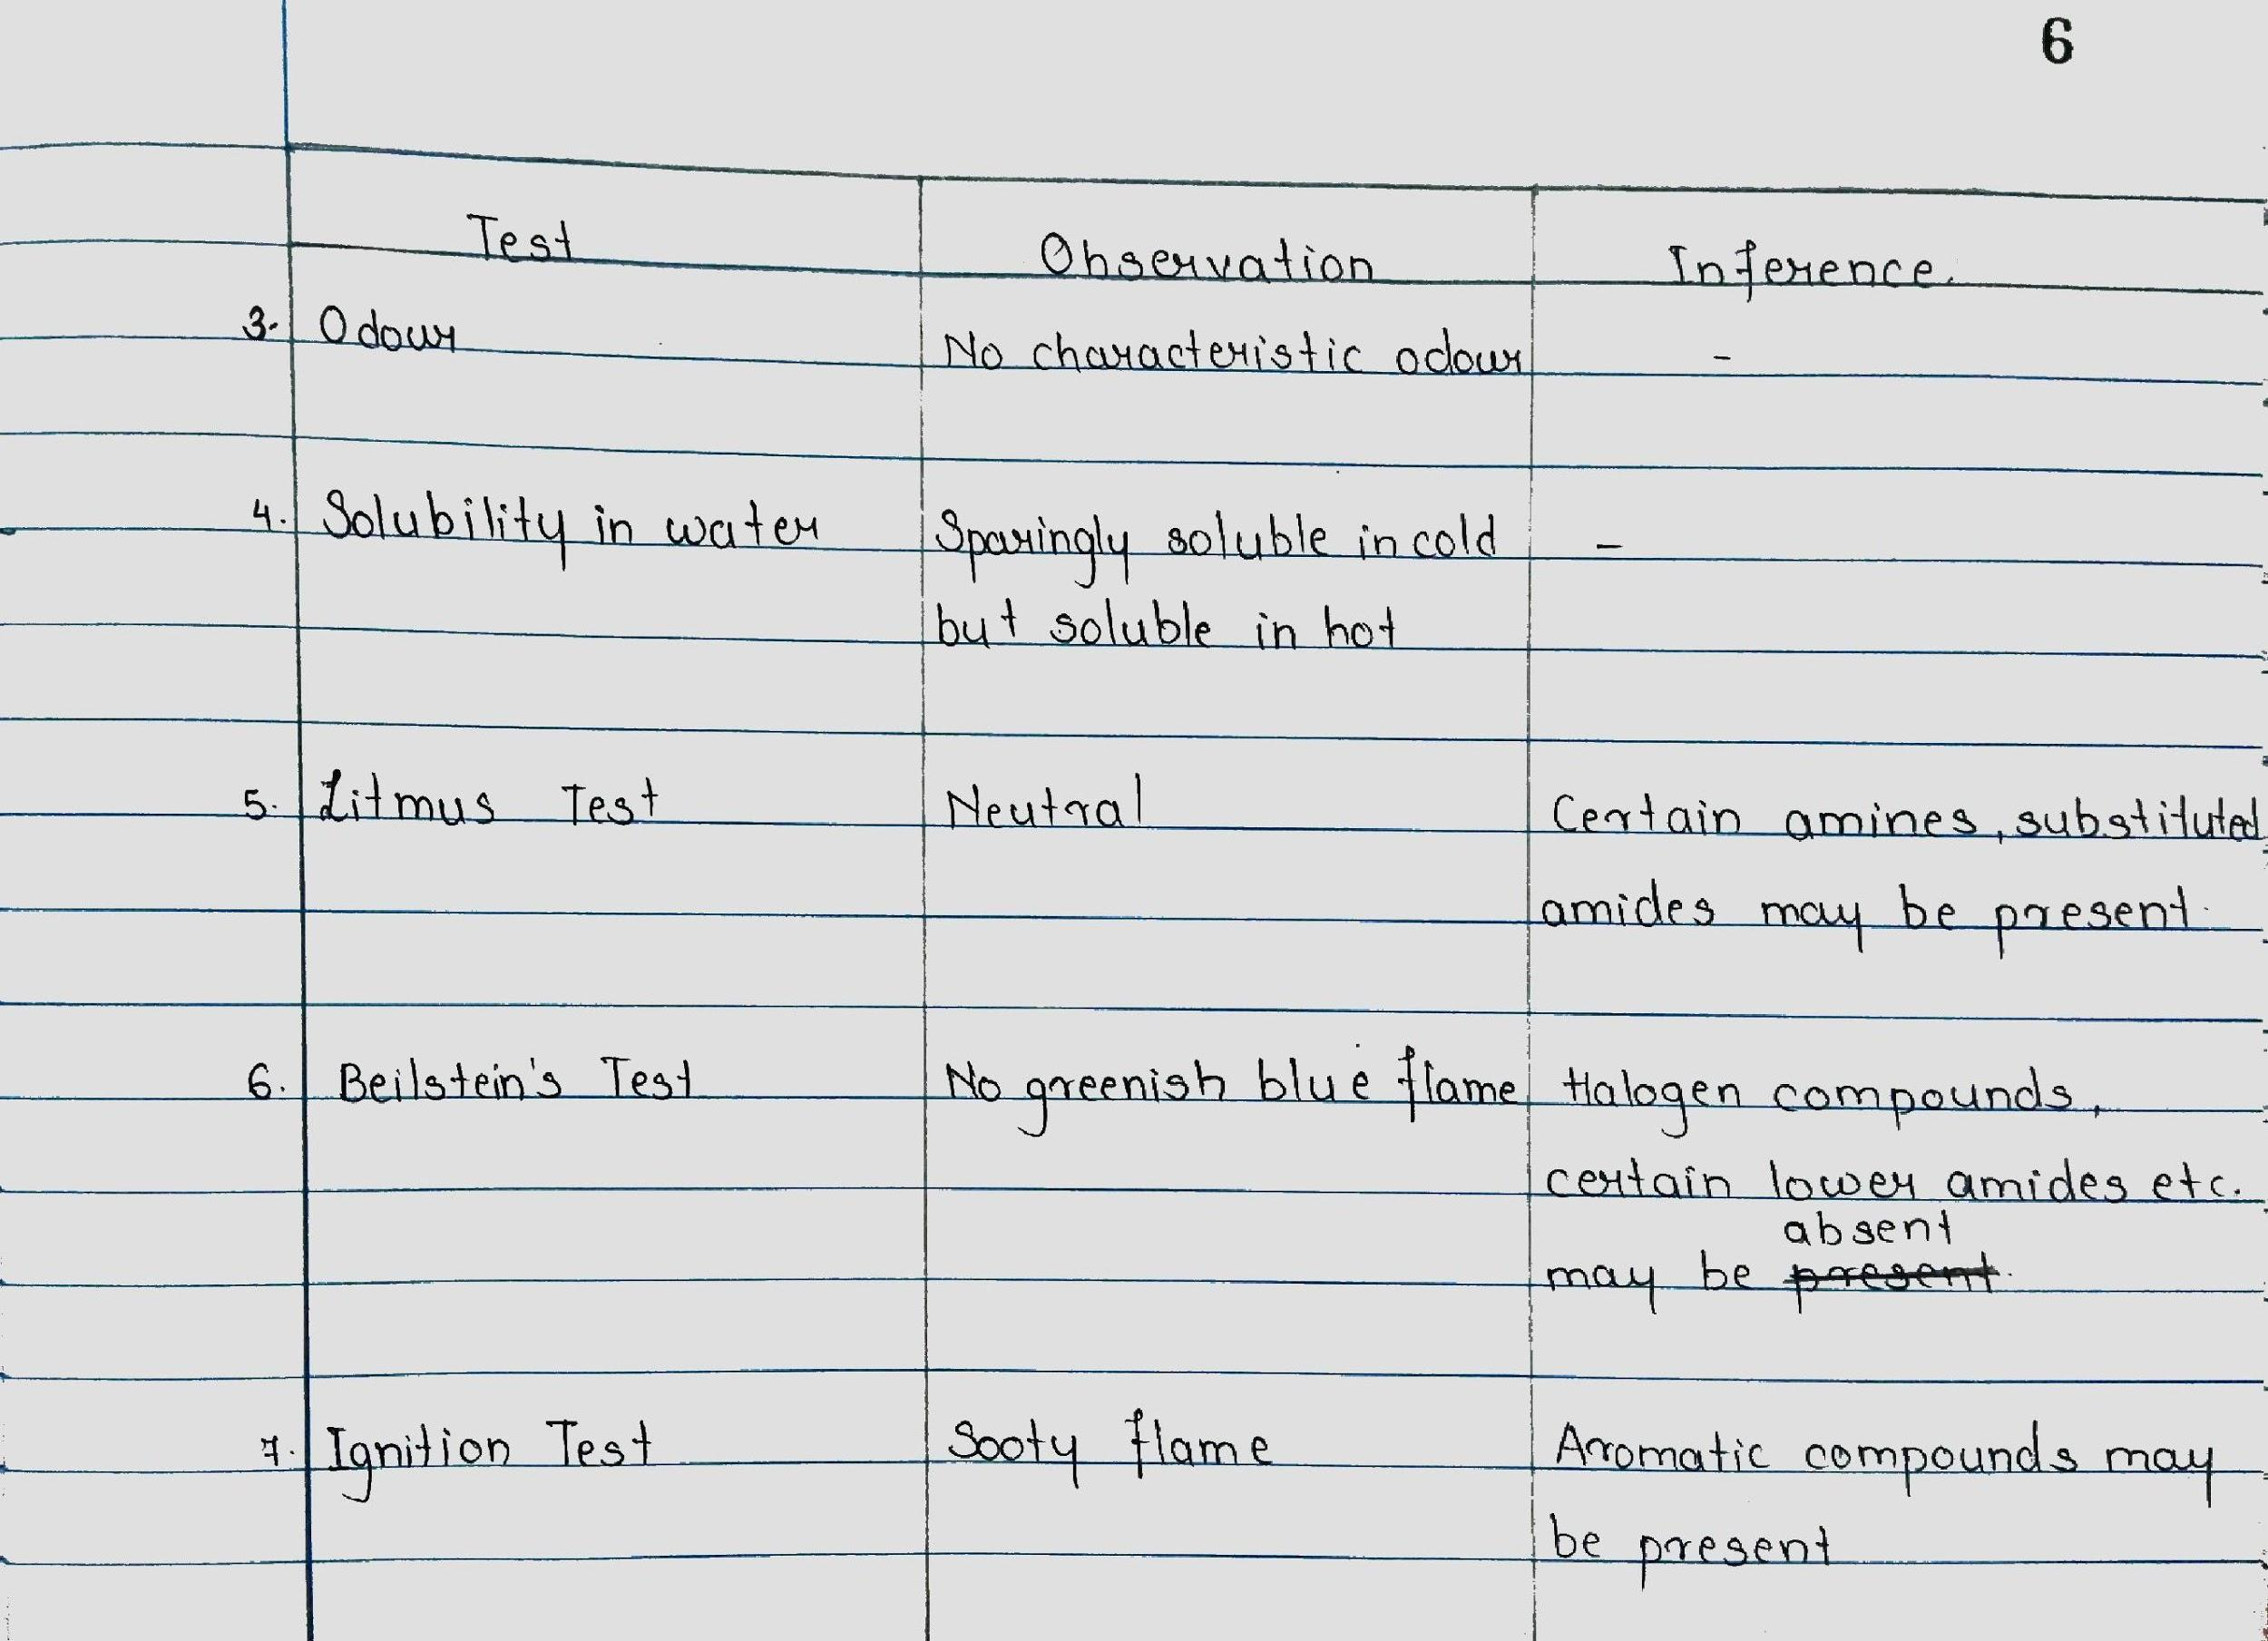 6
Test Observation Inference.
3. Odour No characteristic odour -
4. Solubility in water Sparingly soluble in cold -
but soluble in hot
5. Litmus Test Neutral Certain amines, substituted
amides may be present.
6. Beilstein's Test No greenish blue flame Halogen compounds,
certain lower amides etc.
absent
may be present.
7. Ignition Test Sooty flame Aromatic compounds may
be present